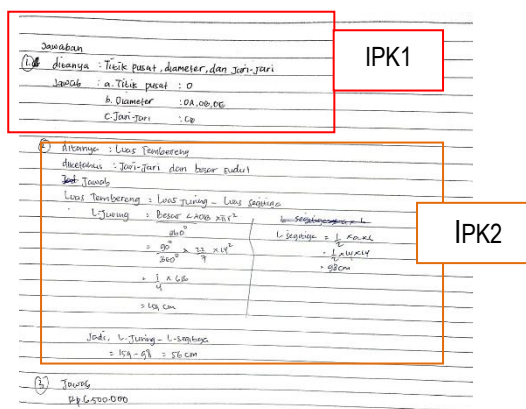 Jawaban
1. ditanya : Titik pusat, diameter, dan Jari-Jari
Jawab : a. Titik pusat : O
b. Diameter : OA, OB, OE
C. Jari-Jari : CB
IPK1
2 ditanya : Luas Tembereng
diketahui : Jari-Jari dan besar sudut
Jawab
Luas Tembereng : Luas Juring - Luas Segitiga
L.Juring : Besar ∠AOB x πr²
360°
= 90° x 22 x 14²
360° 7
= 1 x 616
4
= 154 cm
L segitiga = 1 x a x t
2
= 1 x 14 x 14
2
= 98 cm
Jadi, L.Juring - L.Segitiga
= 154 - 98 = 56 cm
IPK2
3 Jawab
Rp 6.500.000